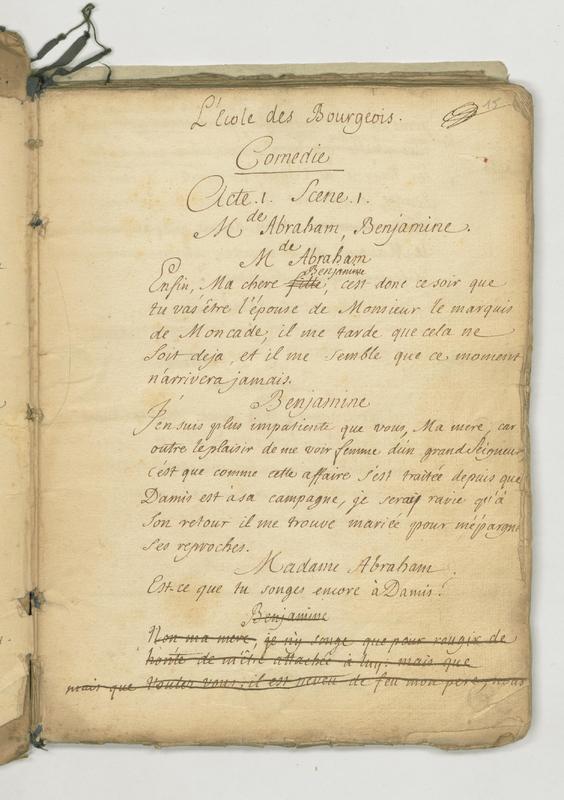 15
L'Ecole des Bourgeois.
Comedie
Acte. 1. Scene. 1.
Mde Abraham, Benjamine.
Mde Abraham
Benjamine
Enfin, Ma chere fille, c'est donc ce soir que
tu vas être l'épouse de Monsieur le marquis
de Moncade, il me tarde que cela ne
soit deja, et il me semble que ce moment
n'arrivera jamais.
Benjamine
J'en suis plus impatiente que vous, Ma mere, car
outre le plaisir de me voir femme d'un grand Seigneur
c'est que comme cette affaire s'est traitée depuis que
Damis est à sa campagne, je serai ravie qu'à
son retour il me trouve mariée pour m'épargn
ses reproches.
Madame Abraham.
Est-ce que tu songes encore à Damis?
Benjamine
Non ma mere, je n'y songe que pour rougir de
honte de m'être attachée à luy. mais que
mais que voulez vous. il est neveu de feu mon pere, nous